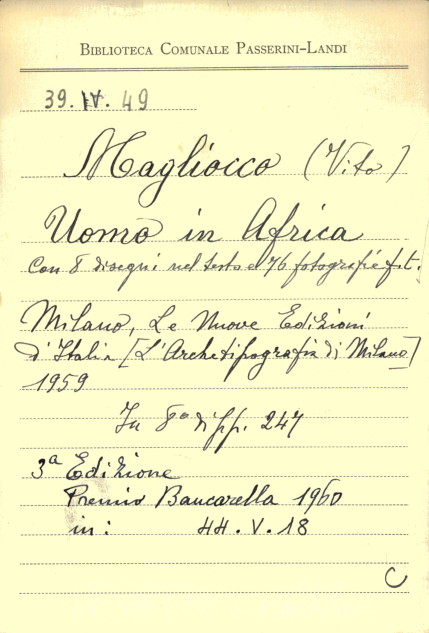 BIBLIOTECA COMUNALE PASSERINI-LANDI
39. IV. 49
Magliocco (Vito)
Uomo in Africa
Con 8 disegni nel testo e 76 fotografie f.t.
Milano, Le Nuove Edizioni
d'Italia [L'Archetipografia di Milano]
1959
In 8° di pp. 247
3a Edizione
Premio Bancarella 1960
in: 44. V. 18
C